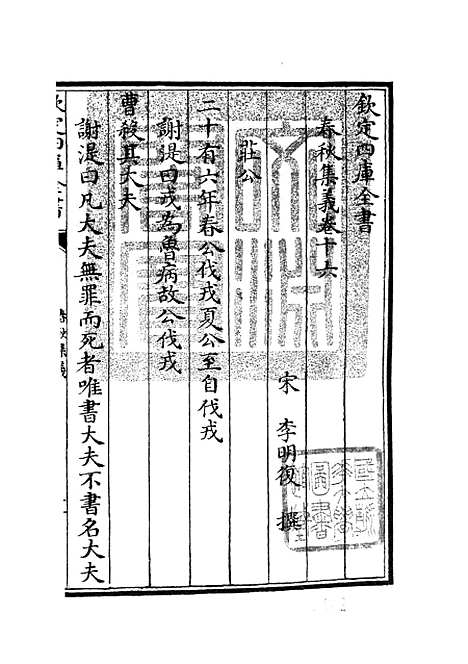 欽定四庫全書
春秋集義卷十六
宋 李明復 撰
莊公
二十有六年春公伐戎夏公至自伐戎
謝湜曰戎為魯病故公伐戎
曹殺其大夫
謝湜曰凡大夫無罪而死者唯書大夫不書名大夫
欽定四庫全書
春秋集義